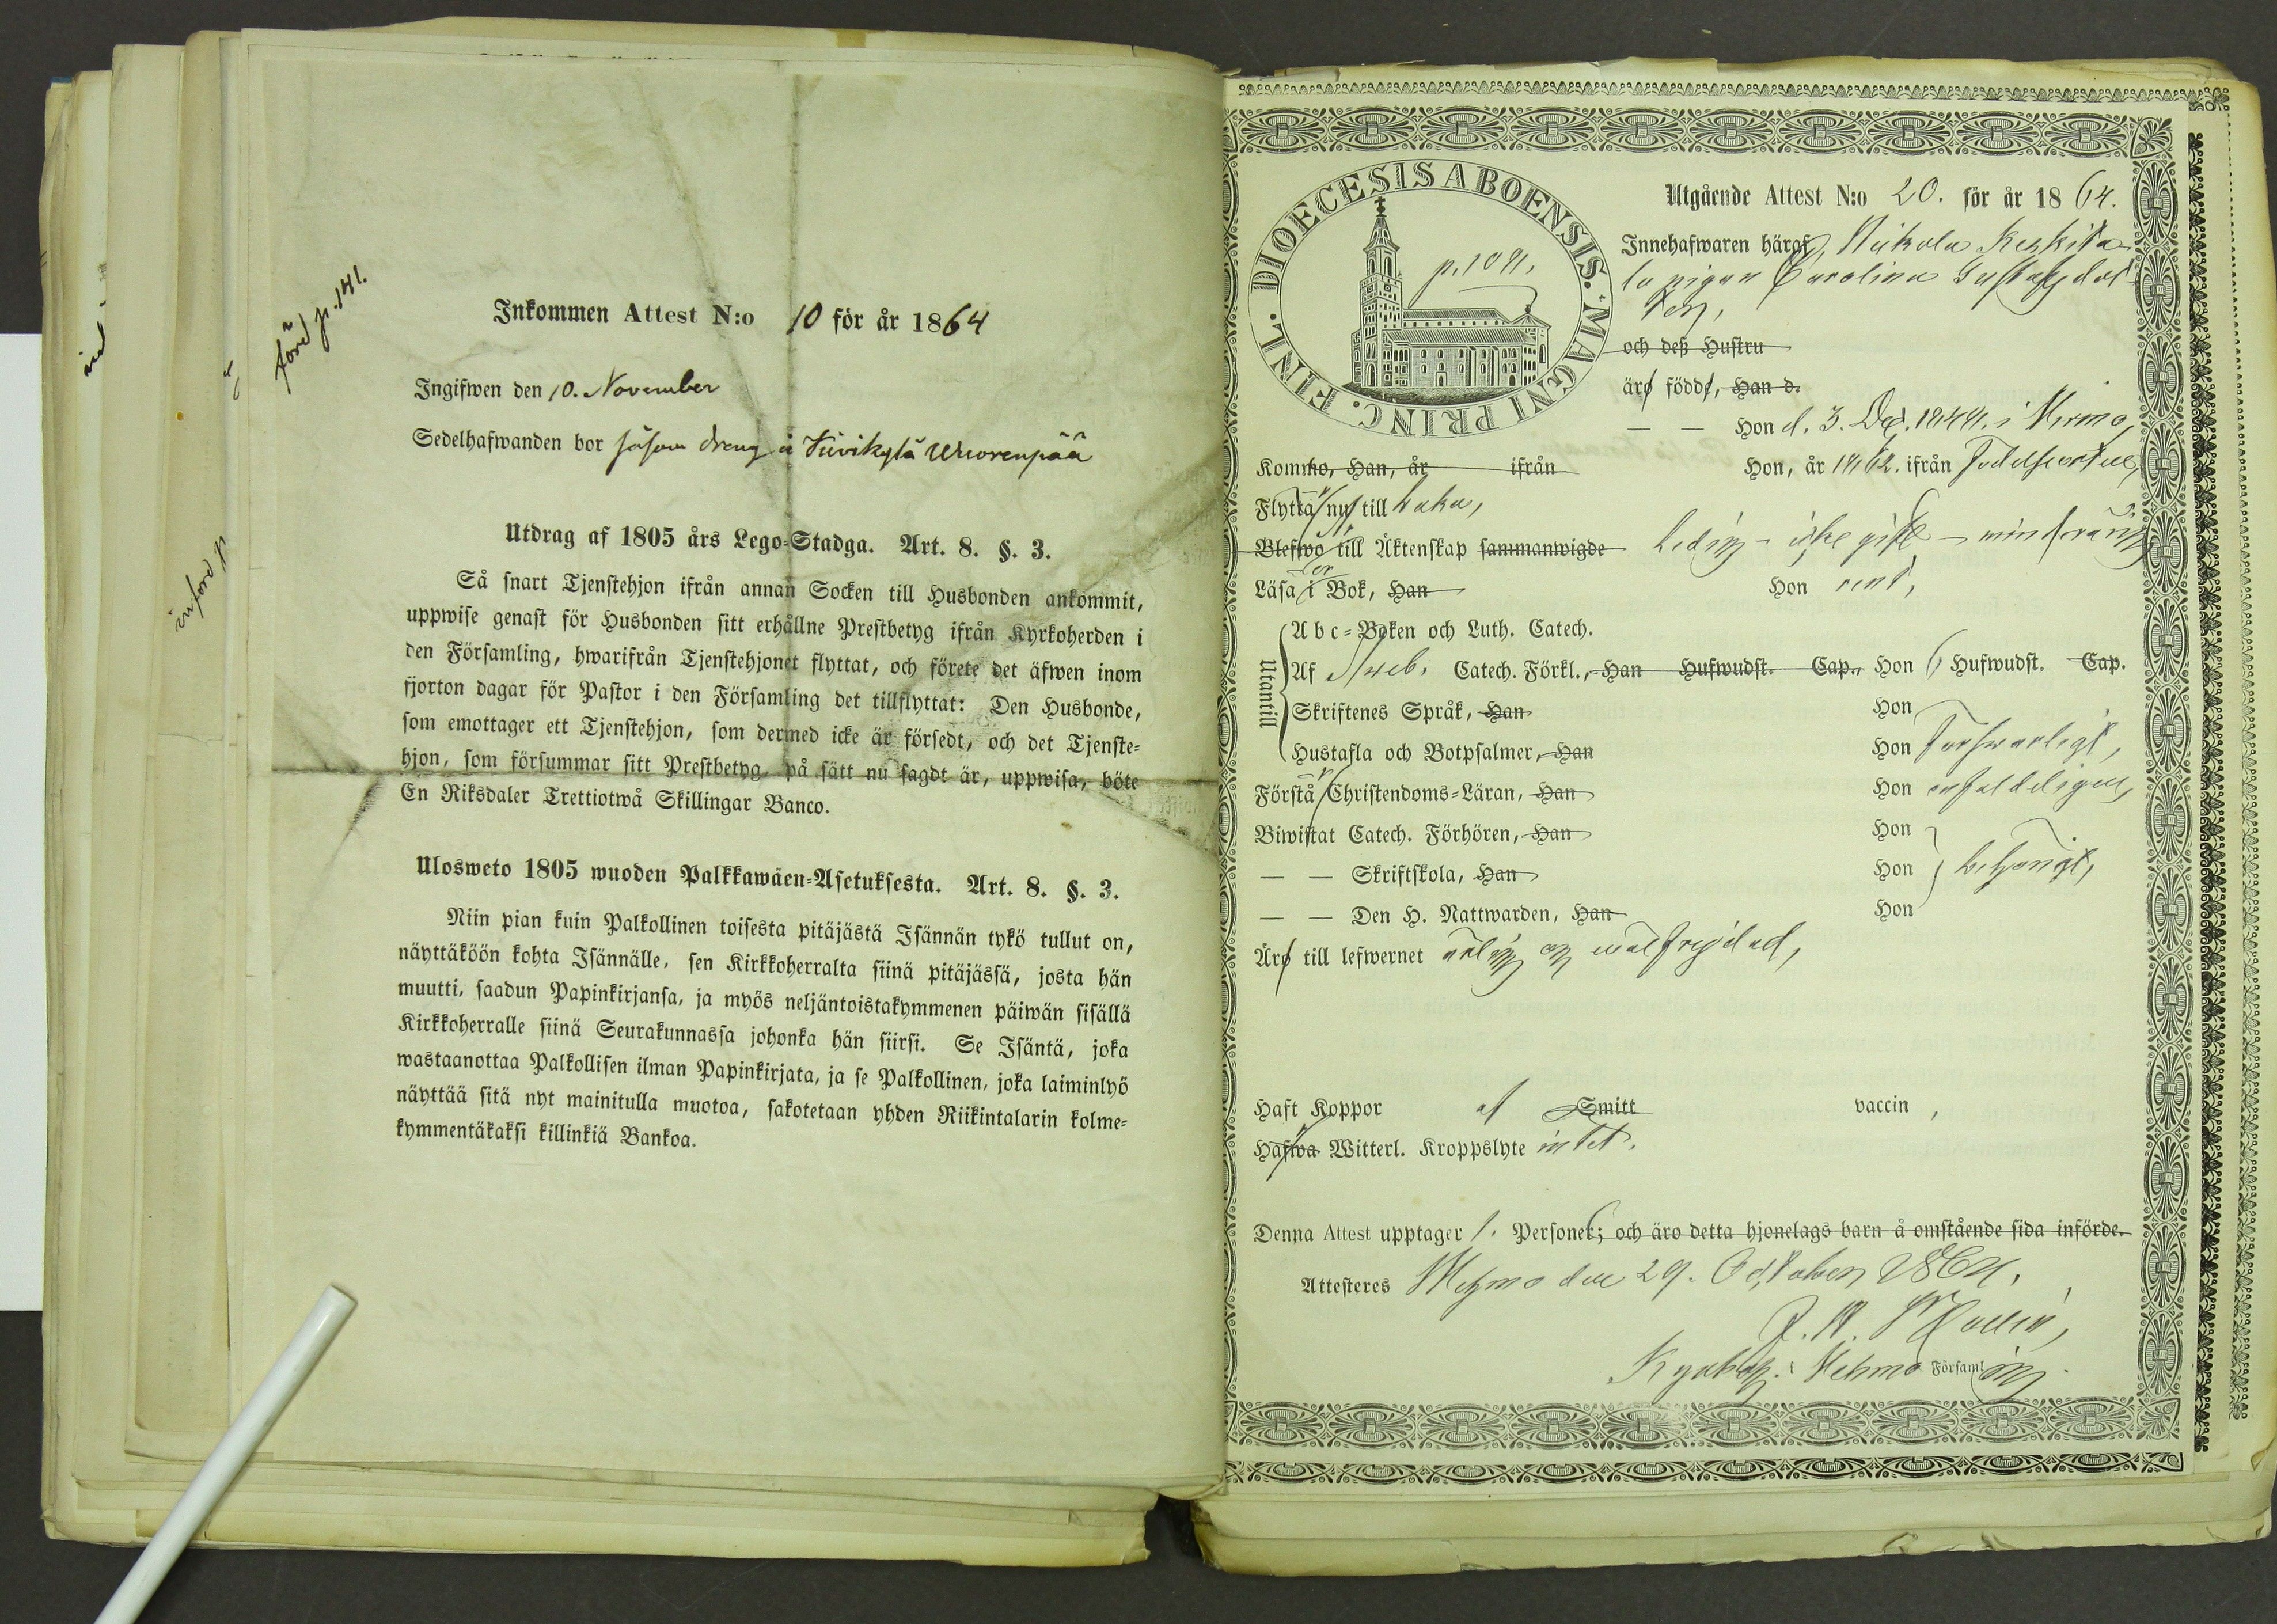 förd p. 141.
införd p
Inkommen Attest N:o 10 för år 1864
Ingifwen den 10. November
Sedelhafwanden bor såsom dreng å Viivikylä Wuorenpää
Utdrag af 1805 års Lego-Stadga. Art. 8. §. 3.
Så snart Tjenstehjon ifrån annan Socken till Husbonden ankommit,
uppwise genast för Husbonden sitt erhållne Prestbetyg ifrån Kyrkoherden i
den Församling, hwarifrån Tjenstehjonet flyttat, och förete det äfwen inom
fjorton dagar för Pastor i den Församling det tillflyttat: Den Husbonde,
som emottager ett Tjenstehjon, som dermed icke är försedt, och det Tjenste-
hjon, som försummar sitt Prestbetyg, på sätt nu sagdt är, uppwisa, böte
En Riksdaler Trettiotwå Skillingar Banco.
Ulosweto 1805 wuoden Palkkawäen-Asetuksesta. Art. 8. §. 3.
Niin pian kuin Palkollinen toisesta pitäjästä Isännän tykö tullut on,
näyttäköön kohta Isännälle, sen Kirkkoherralta siinä pitäjässä, josta hän
muutti, saadun Papinkirjansa, ja myös neljäntoistakymmenen päiwän sisällä
Kirkkoherralle siinä Seurakunnassa johonka hän siirsi. Se Isäntä, joka
wastaanottaa Palkollisen ilman Papinkirjata, ja se Palkollinen, joka laiminlyö
näyttää sitä nyt mainitulla muotoa, sakotetaan yhden Riikintalarin kolme-
kymmentäkaksi killinkiä Bankoa.
DIOECESIS ABOENSIS. MAGNI PRINC. FINL.
p. 101.
Utgående Attest N:o 20. för år 1864.
Innehafwaren häraf, Nickola Keskita-
lo pigan Carolina Gustafsdot-
ter,
och deß Hustru
äro födde, Han d.
— — Hon d. 3. Dec. 1844. i Virmo,
Kommo, Han, år ifrån Hon, år 1862. ifrån Födelseorten,
Flytta nu till
Blefwo till Äktenskap sammanwigde Ledig - icke gift - minderårig
Läsa i Bok, Han Hon rent,
Utantill
Abc-Boken och Luth. Catech.
Af Sweb. Catech. Förkl., Han Hufwudst. Cap., Hon 6 Hufwudst. Cap.
Skriftenes Språk, Han Hon
Hustafla och Botpsalmer, Han Hon Förswarligt,
Förstå Christendoms-Läran, Han Hon enfaldeligen,
Biwistat Catech. Förhören, Han Hon
— — Skriftskola, Han Hon behörigt,
— — Den H. Nattwarden, Han Hon
Äro till lefwernet ärlig og wälfrejdad,
Haft Koppor af Smitt vaccin,
Hafwa Witterl. Kroppslyte intet.
Denna Attest upptager 1. Personer; och äro detta hjonelags barn å omstående sida införde.
Attesteres Wehmo den 29. October 1864.
i Wehmo Församling.